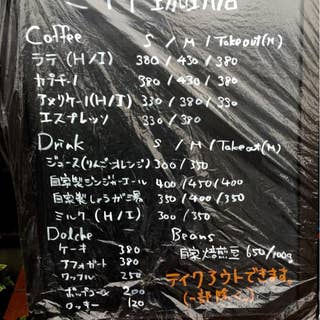 Coffee S / M / Takeout(M)
ラテ (H/I) 380 / 430 / 380
カプチーノ 380 / 430 / 380
アメリケーノ(H/I) 330 / 380 / 330
エスプレッソ 330 / 380
Drink S / M / Takeout(M)
ジュース(りんご・オレンジ) 300 / 350
自家製ジンジャーエール 400 / 450 / 400
自家製しょうが湯 350 / 400 / 350
ミルク (H/I) 300 / 350
Dolche Beans
ケーキ 380 自家焙煎豆 650/100g
アフォガート 380
ワッフル 250 テイクアウトできます
ポップコーン 200
クッキー 120